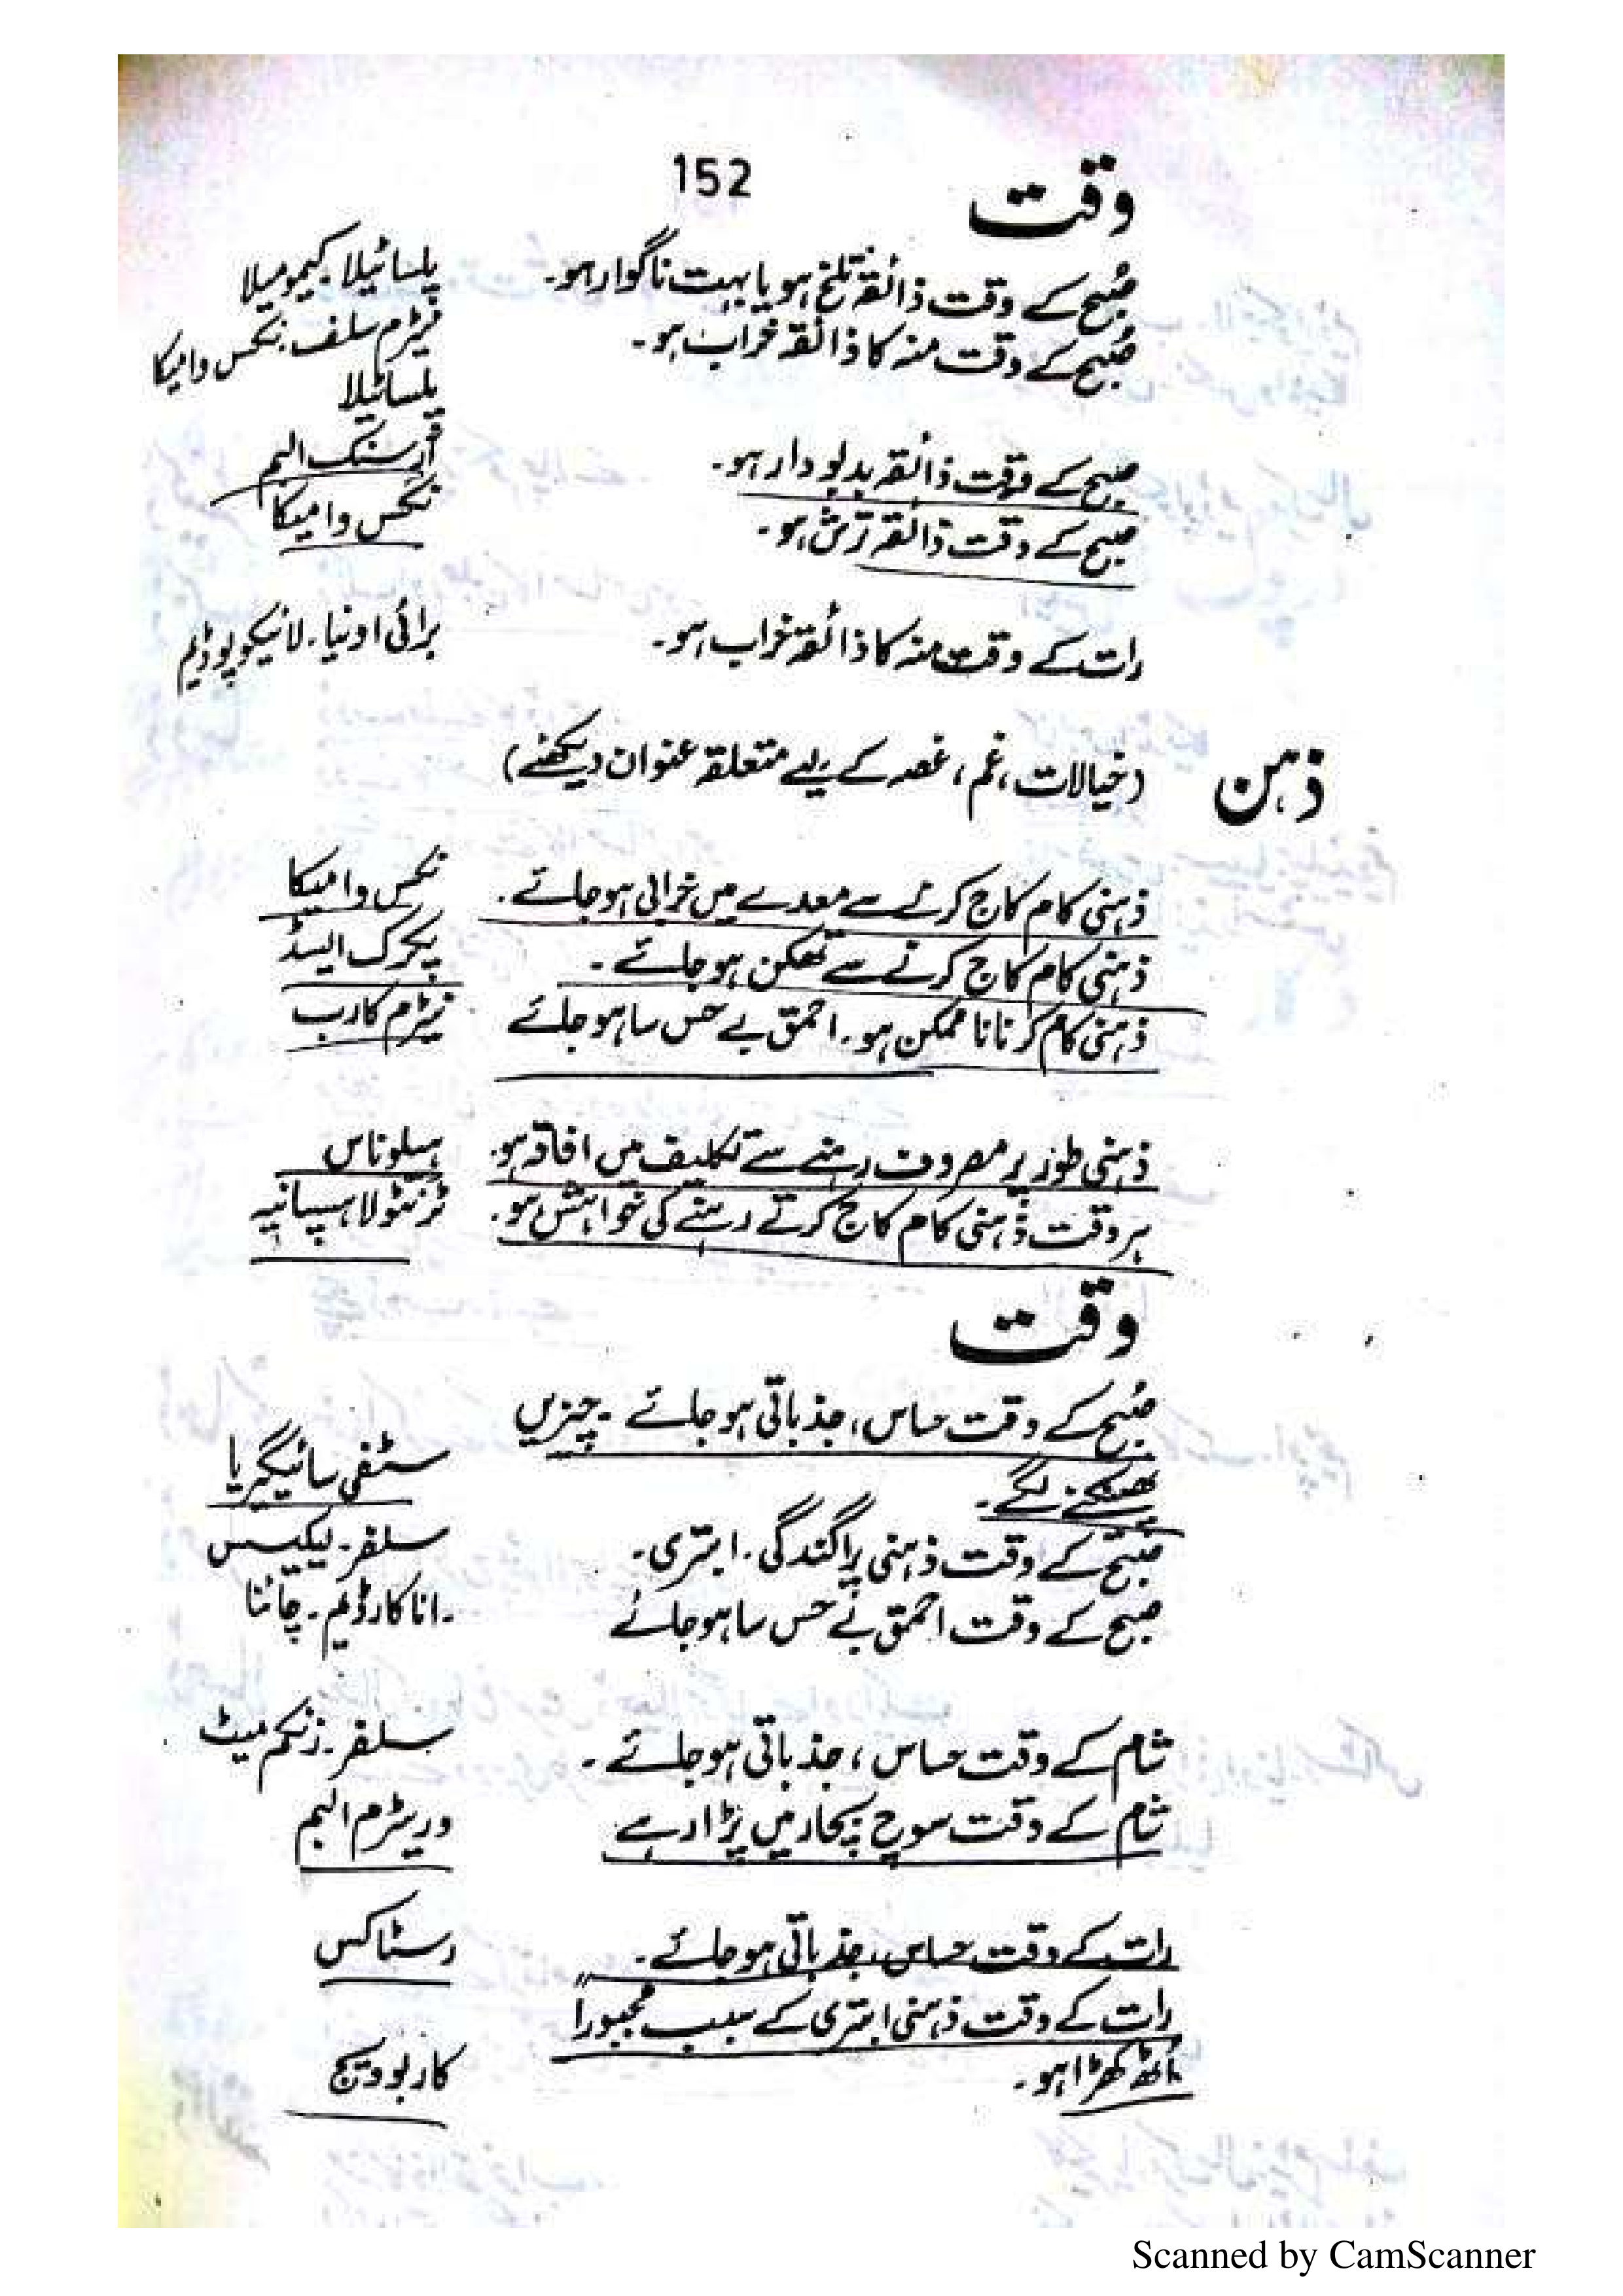 152
وقت
صُبح کے وقت ذائقہ تلخ ہو یا بہت ناگوار ہو۔ پلساٹیلا۔ کیمومیلا
صُبح کے وقت منہ کا ذائقہ خراب ہو۔ نیٹرم سلف۔ نکس وامیکا
پلساٹیلا
صبح کے وقت ذائقہ بدبودار ہو۔ آرسنک البم
صبح کے وقت ذائقہ ترش ہو۔ نکس وامیکا
رات کے وقت منہ کا ذائقہ خراب ہو۔ برائی اونیا۔ لائیکوپوڈیم
ذہن (خیالات، غم، غصہ کے لیے متعلقہ عنوان دیکھئے)
ذہنی کام کاج کرنے سے معدے میں خرابی ہو جائے۔ نکس وامیکا
ذہنی کام کاج کرنے سے تھکن ہو جائے۔ پکرک ایسڈ
ذہنی کام کرنا ناممکن ہو۔ احمق بے حس سا ہو جائے نیٹرم کارب
ذہنی طور پر مصروف رہنے سے تکلیف میں افاقہ ہو۔ ہیلوناس
ہر وقت ذہنی کام کاج کرتے رہنے کی خواہش ہو۔ ٹرنٹولا ہسپانیہ
وقت
صُبح کے وقت حساس، جذباتی ہو جائے۔ چیزیں
پھینکنے لگے۔ سٹفی سائیگیریا
صبح کے وقت ذہنی پراگندگی۔ ابتری۔ سلفر۔ لیکیسس
صبح کے وقت احمق بے حس سا ہو جائے ۔اناکارڈیم۔ چائنا
شام کے وقت حساس، جذباتی ہو جائے۔ سلفر۔ زنکم میٹ
شام کے وقت سوچ بچار میں پڑا رہے وریٹرم البم
رات کے وقت حساس، جذباتی ہو جائے۔ رسٹاکس
رات کے وقت ذہنی ابتری کے سبب مجبوراً
اٹھ کھڑا ہو۔ کاربوویج
Scanned by CamScanner